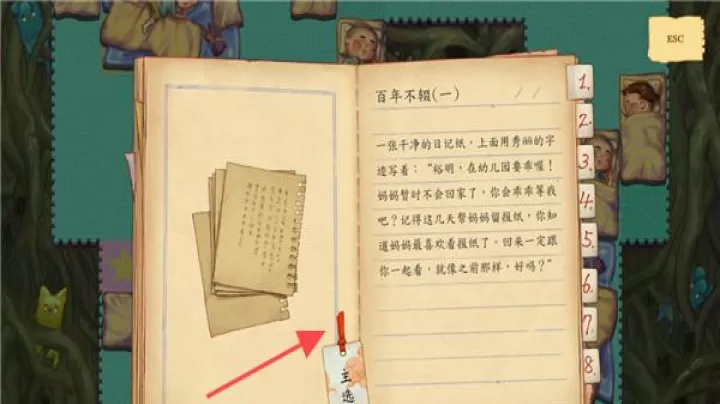 ESC
百年不辍(一)
一张干净的日记纸，上面用秀丽的字
迹写着：“裕明，在幼儿园要乖喔！
妈妈暂时不会回家了。你会乖乖等我
吧？记得这几天帮妈妈留报纸，你知
道妈妈最喜欢看报纸了。回来一定跟
你一起看，就像之前那样，好吗？”
1.
2.
3.
4.
5.
6.
7.
8.
主选